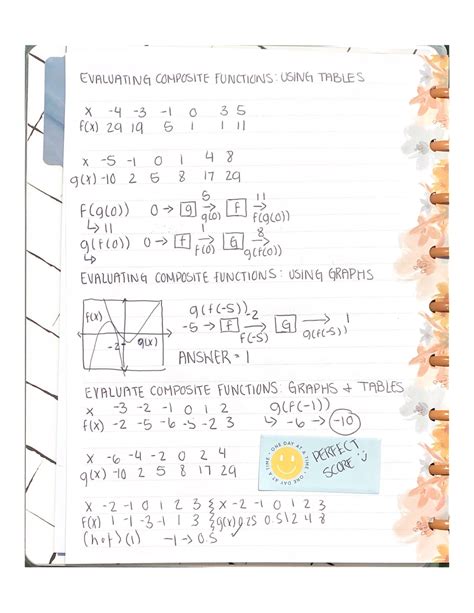 EVALUATING COMPOSITE FUNCTIONS: USING TABLES
x -4 -3 -1 0 3 5
f(x) 29 19 5 1 1 11
x -5 -1 0 1 4 8
g(x) -10 2 5 8 17 29
f(g(0)) 0 → g 5→ g(0) f 11→ f(g(0))
↳ 11
g(f(0)) 0 → f 1→ f(0) G 8→ g(f(0))
↳
EVALUATING COMPOSITE FUNCTIONS: USING GRAPHS
f(x) g(x) -2
g(f(-5))
-5 → f -2→ f(-5) G → 1 g(f(-5))
ANSWER = 1
EVALUATE COMPOSITE FUNCTIONS: GRAPHS + TABLES
x -3 -2 -1 0 1 2 g(f(-1))
f(x) -2 -5 -6 -5 -2 3 ↳ -6 → -10
x -6 -4 -2 0 2 4
g(x) -10 2 5 8 17 29
ONE DAY AT A TIME • ONE DAY AT A TIME •
PERFECT
SCORE :)
x -2 -1 0 1 2 3 x -2 -1 0 1 2 3
f(x) 1 -1 -3 -1 1 3 g(x) 0.25 0.5 1 2 4 8
(hof)(1) -1 → 0.5 ✓